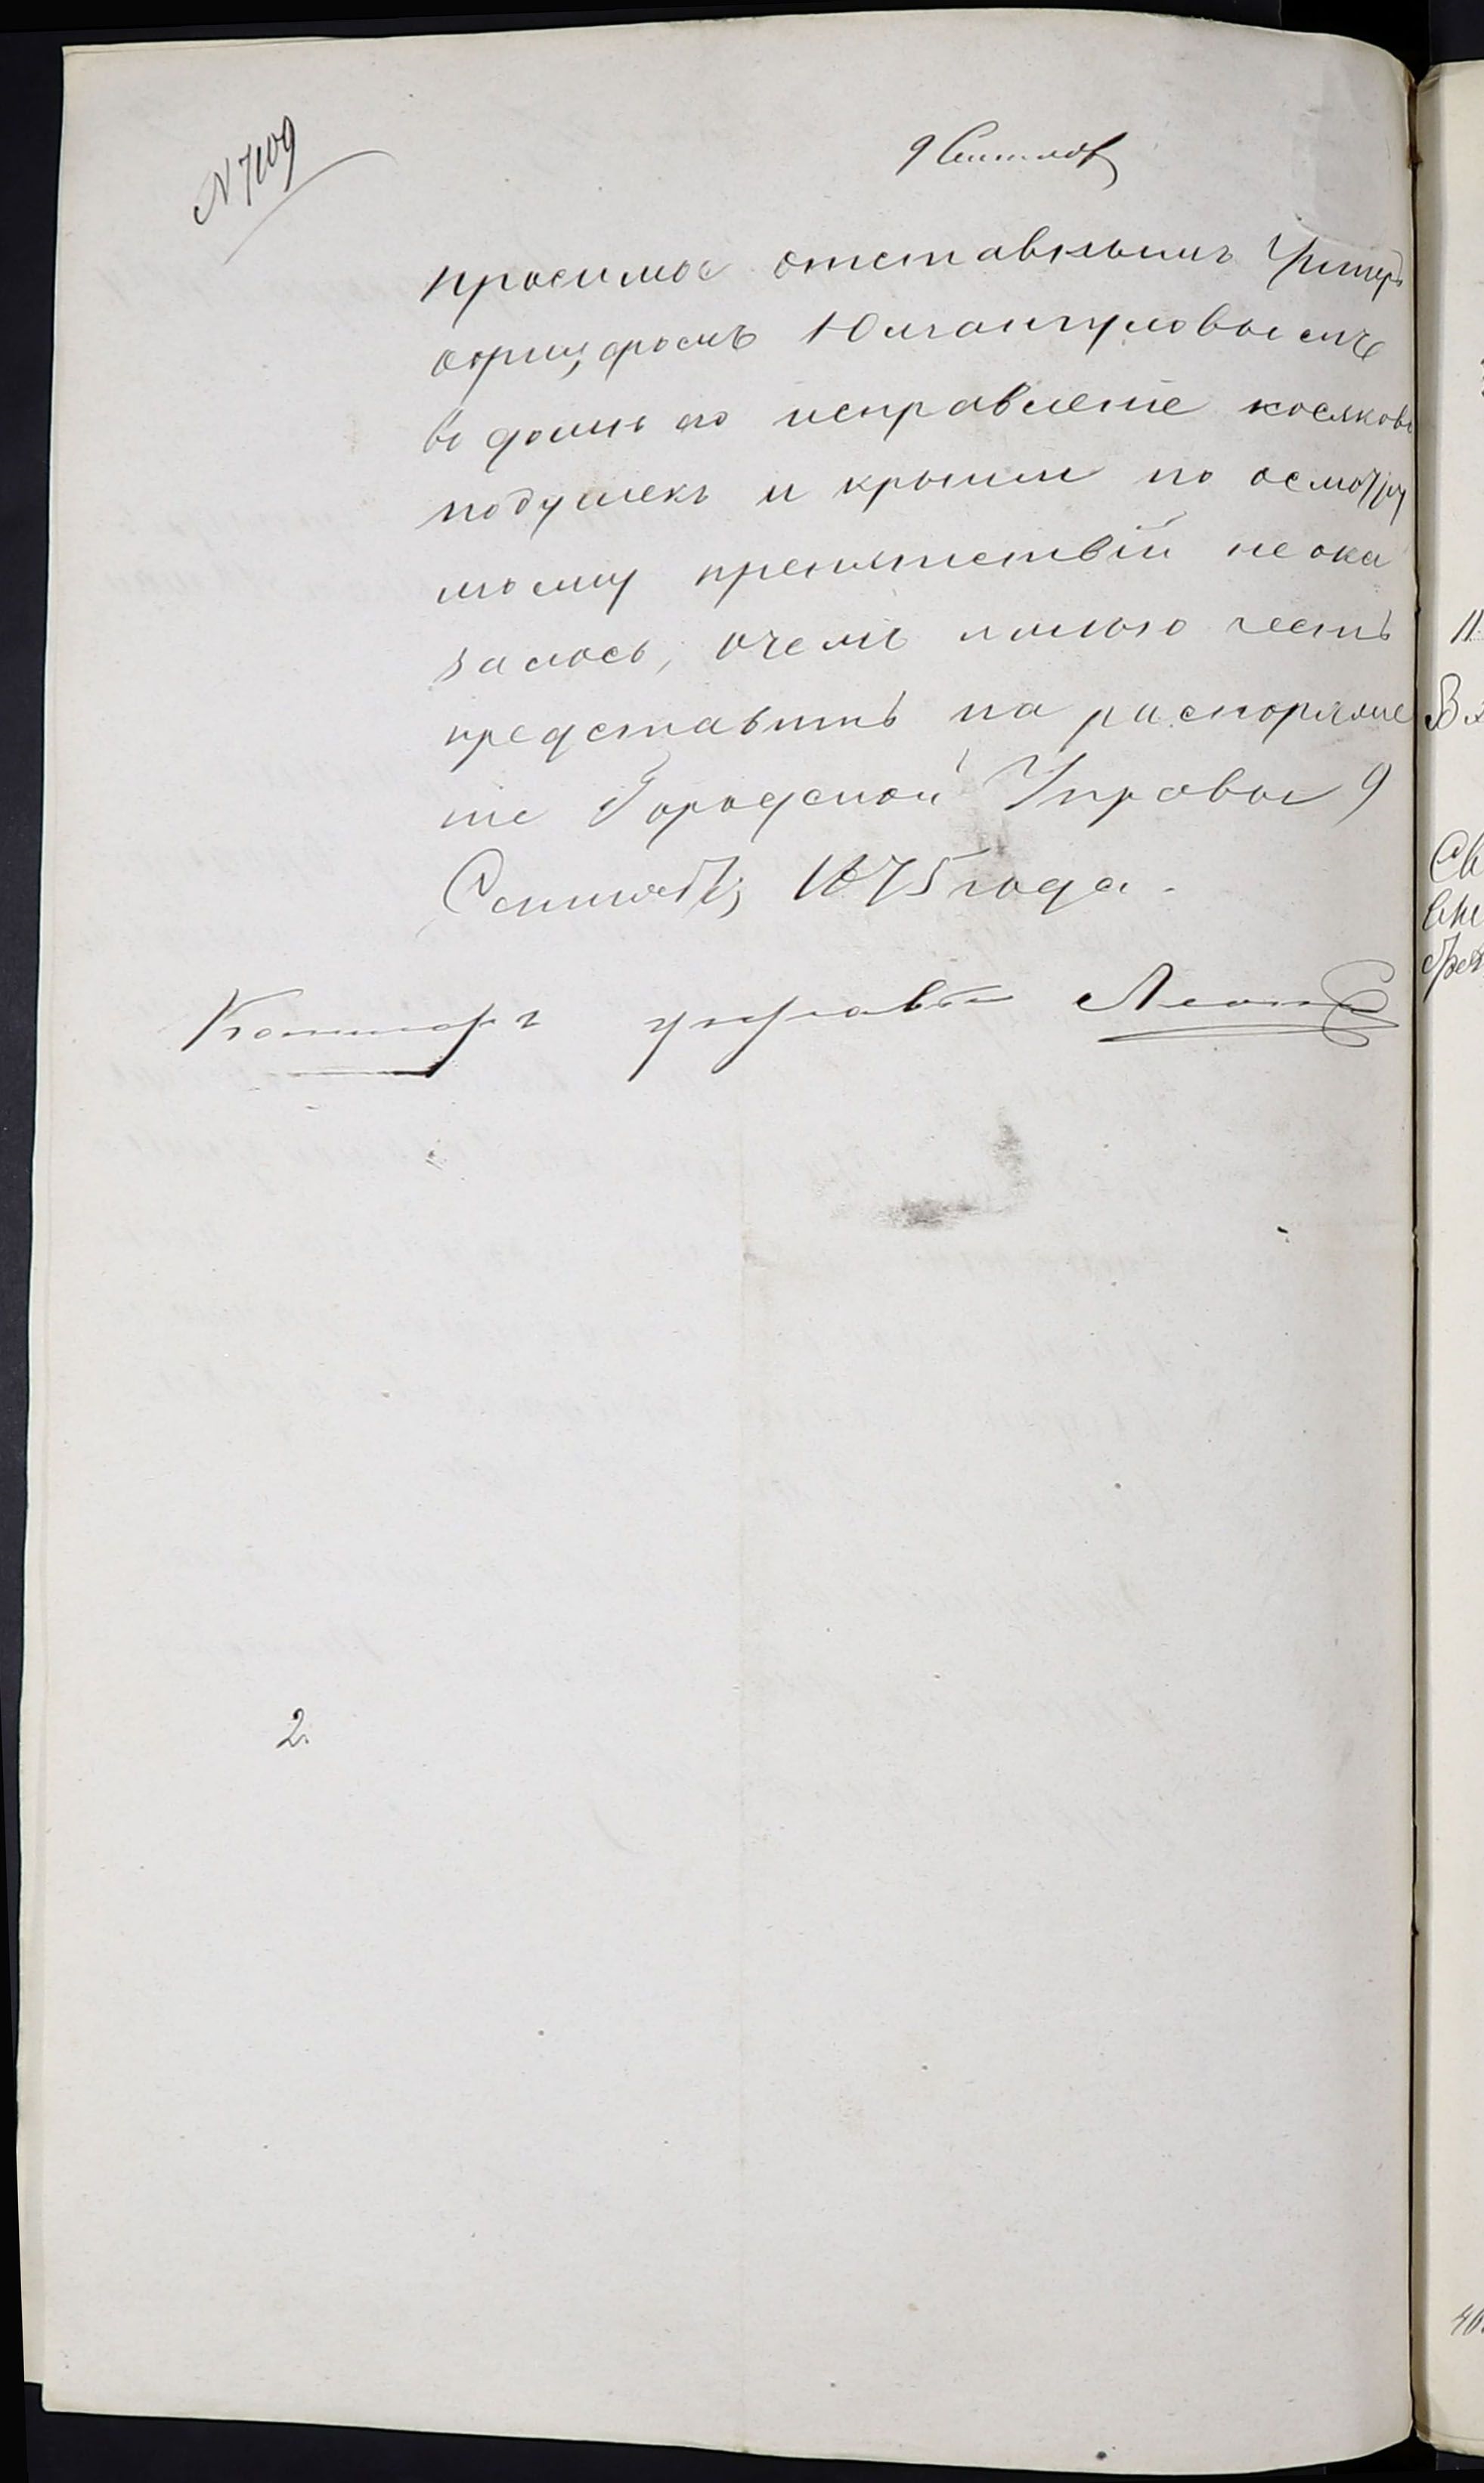 N 7109
9 Сентяб
просимое отставнымъ Унтеръ
офицеромъ Юмангуловымъ
въ домѣ его исправленіе косяковъ
подушекъ и крыши по осмотру
моему препятствій не ока
залось, о чемъ имѣю честь
представить на распоряже
ніе Городской Управы 9
Сентября 1875 года.
управы
2.